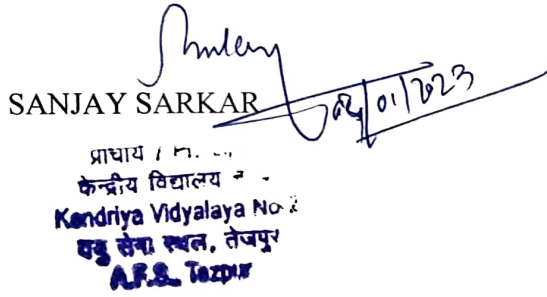 SANJAY SARKAR
/01/2023
प्राचार्य /
केन्द्रीय विद्यालय
Kendriya Vidyalaya No. 2
वायु सेना स्थल, तेजपुर
A.F.S. Tezpur